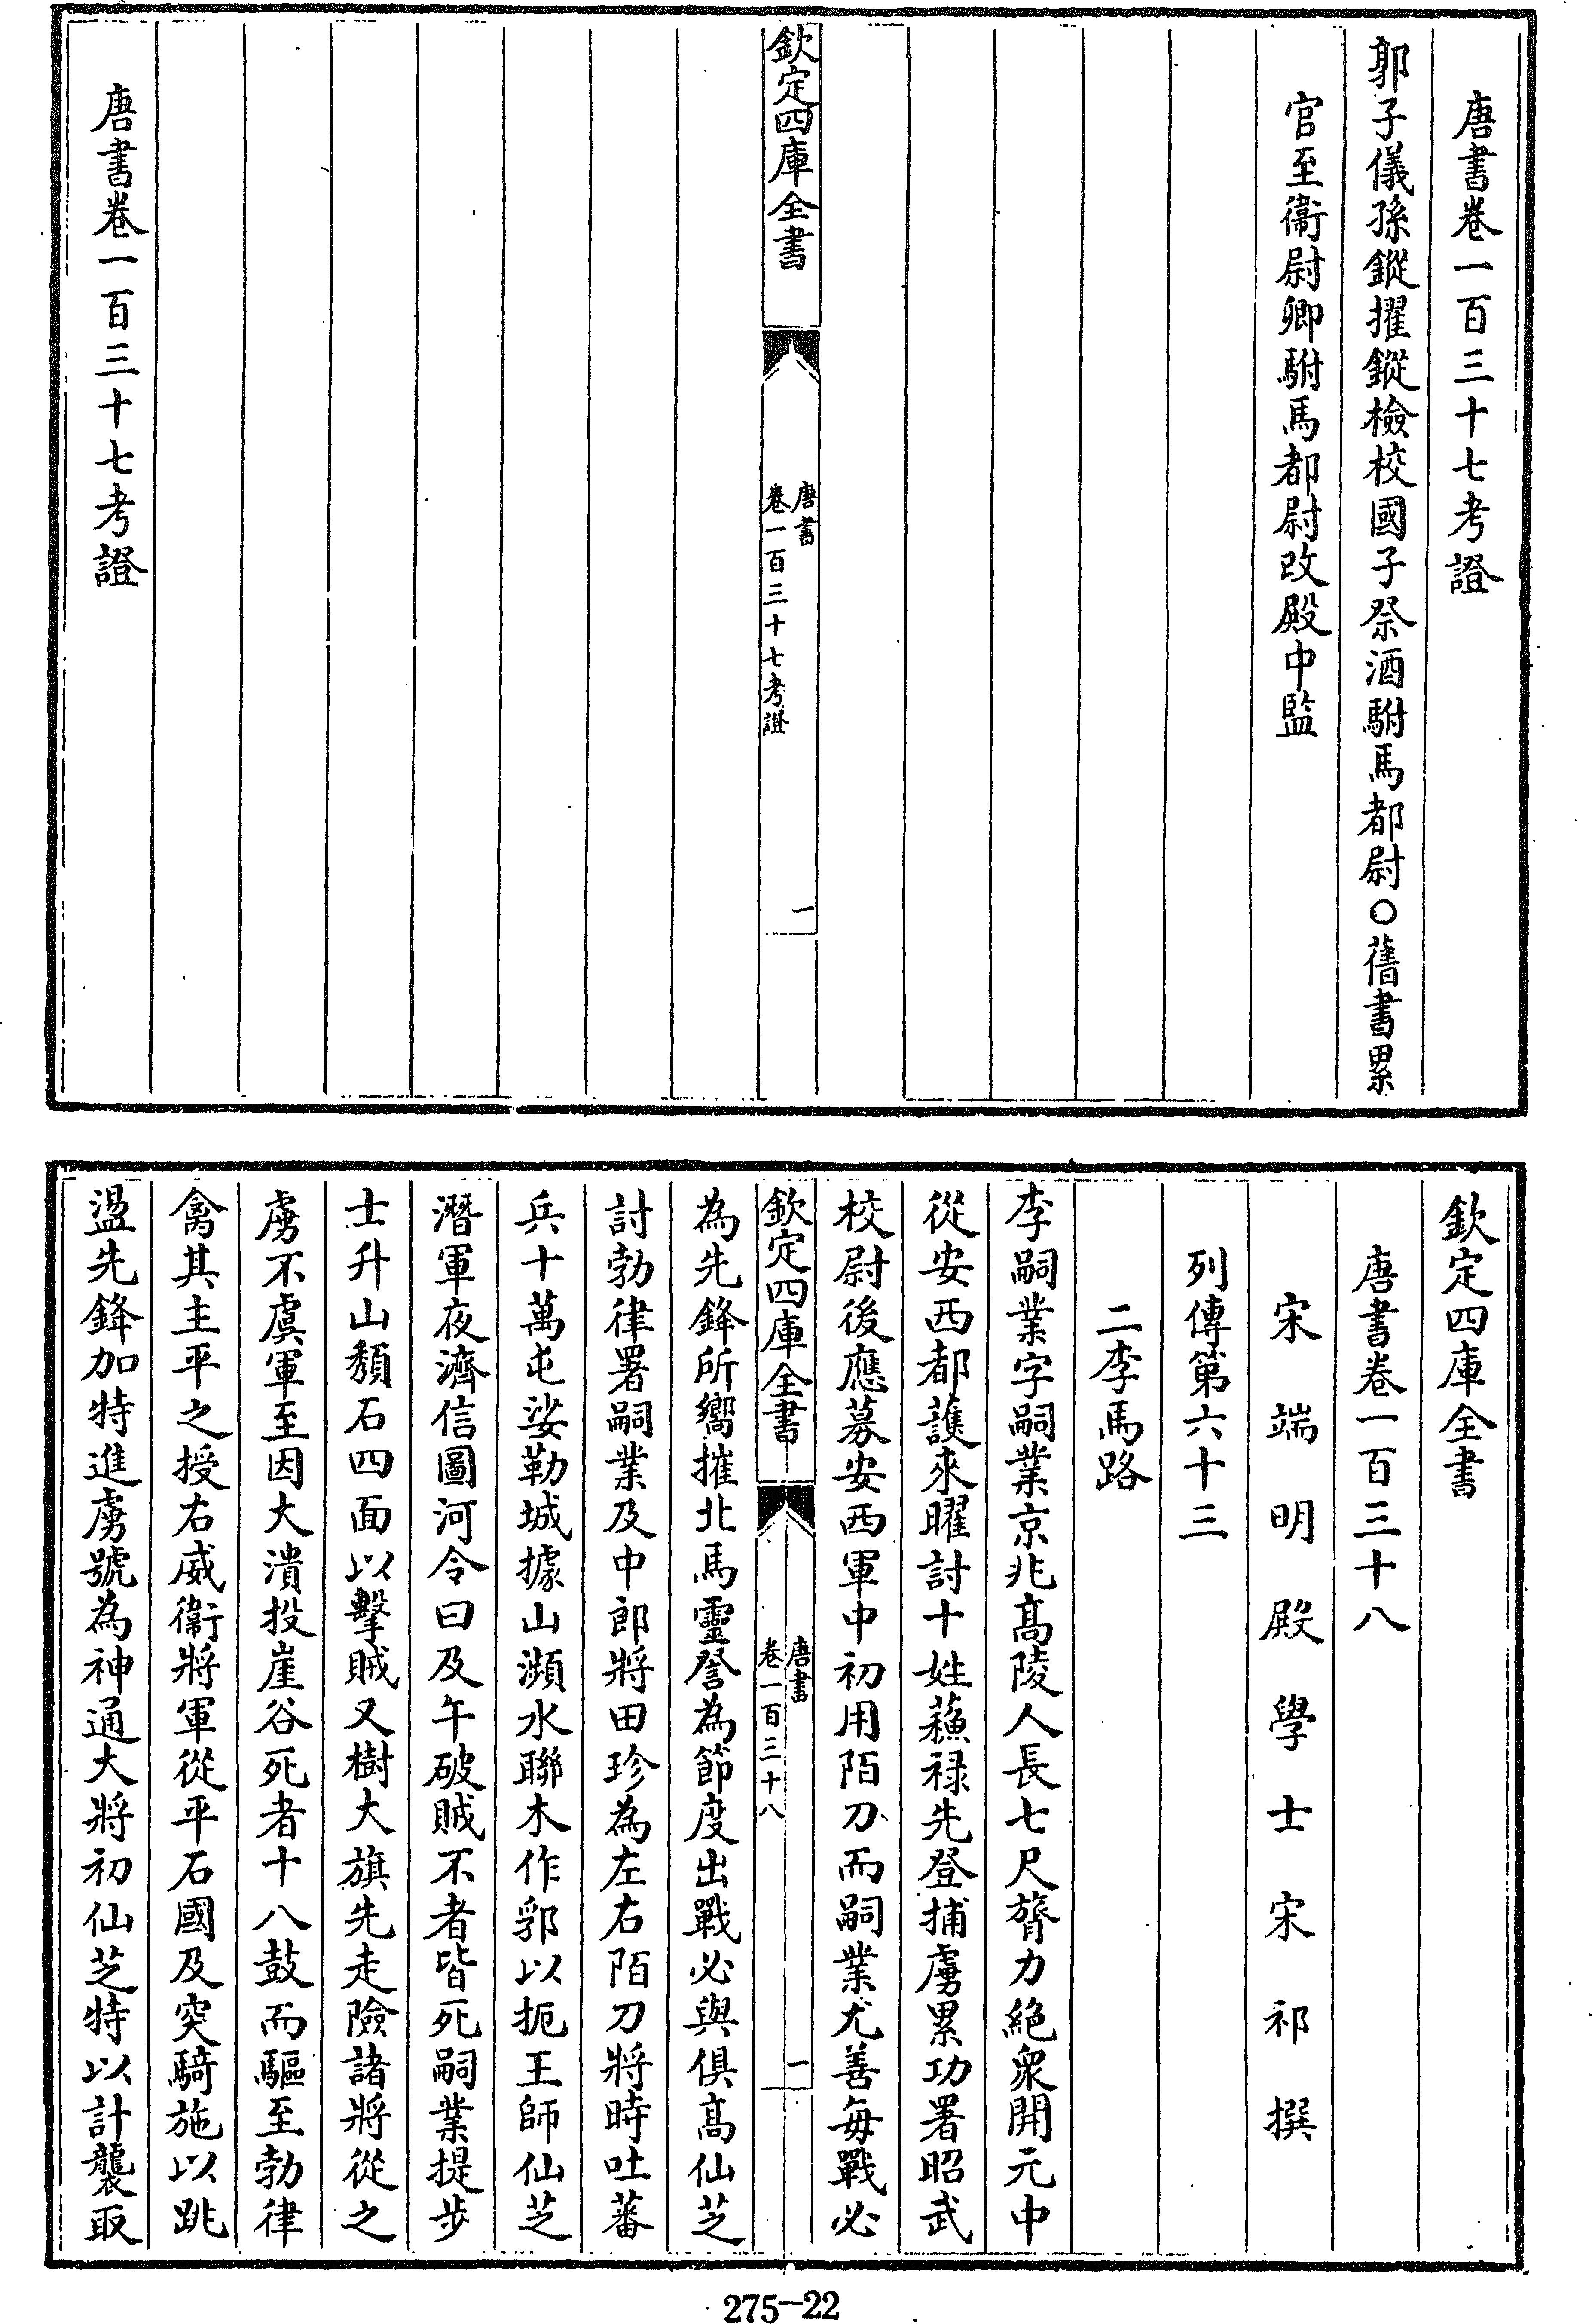 唐書卷一百三十七考證
郭子儀孫鏦擢鏦檢校國子祭酒駙馬都尉○舊書累
官至衞尉卿駙馬都尉改殿中監
欽定四庫全書
唐書
卷一百三十七考證
一
唐書卷一百三十七考證
欽定四庫全書
唐書卷一百三十八
宋端明殿學士宋祁撰
列傳第六十三
二李馬路
李嗣業字嗣業京兆髙陵人長七尺膂力絶衆開元中
從安西都護來曜討十姓蘓禄先登捕虜累功署昭武
校尉後應募安西軍中初用陌刀而嗣業尤善每戰必
為先鋒所嚮摧北馬靈詧為節度出戰必與俱髙仙芝
欽定四庫全書
唐書
卷一百三十八
一
討勃律署嗣業及中郎將田珍為左右陌刀將時吐蕃
兵十萬屯娑勒城據山瀕水聯木作郛以扼王師仙芝
潛軍夜濟信圖河令曰及午破賊不者皆死嗣業提步
士升山頽石四面以擊賊又樹大旗先走險諸將從之
虜不虞軍至因大潰投崖谷死者十八鼓而驅至勃律
禽其主平之授右威衞將軍從平石國及突騎施以跳
盪先鋒加特進虜號為神通大將初仙芝特以計襲取
275-22